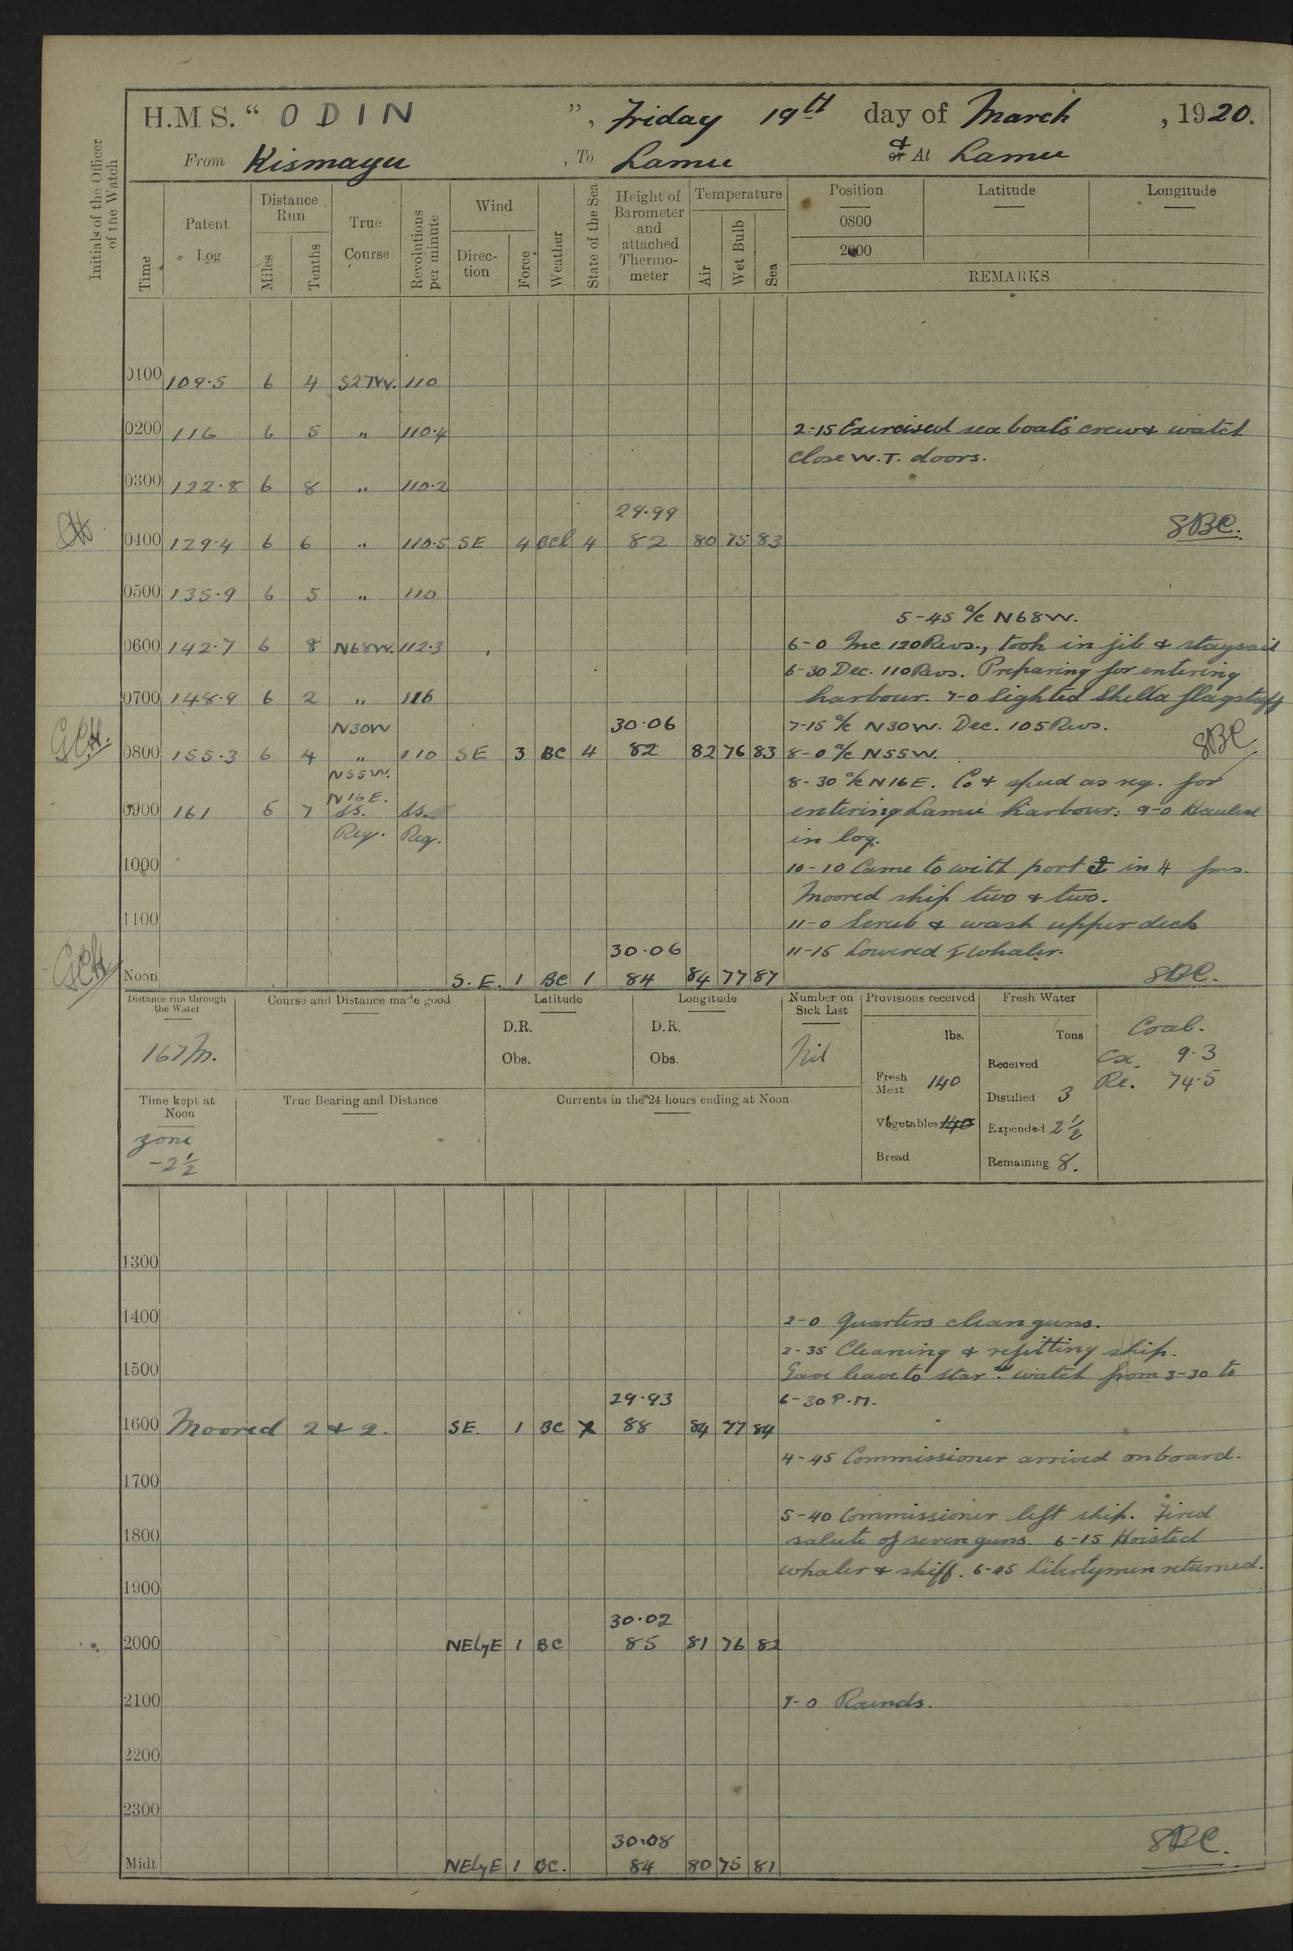 H.M S. “ ODIN ”, Friday 19th day of March, 1920.
From Kismayu, To Lamu & or At Lamu
Initials of the Officer of the Watch
Time
Patent Log
Distance Run
Miles
Tenths
True Course
Revolutions per minute
Wind
Direction
Force
Weather
State of the Sea
Height of Barometer and attached Thermometer
Temperature
Air
Wet Bulb
Sea
Position Latitude Longitude
0800
2000
REMARKS
0100 109.5 6 4 S27W. 110
0200 116 6 5 " 110.4
2-15 Exercised sea boats crew & watch
close W.T. doors.
0300 122.8 6 8 " 110.2
29.99
0400 129.4 6 6 " 110.5 SE 4 BCl 4 82 80 75 83
SBC.
0500 135.9 6 5 " 110
5-45 a/c N68W.
0600 142.7 6 8 N68W. 112.3
6-0 Inc 120 Revs., took in jib & staysail
6-30 Dec. 110 Revs. Preparing for entering
0700 148.9 6 2 " 116
harbour. 7-0 Sighted Shella flagstaff
N30W 30.06
7-15 a/c N30W. Dec. 105 Revs.
GCH.
0800 155.3 6 4 " 110 SE 3 BC 4 82 82 76 83
8-0 a/c N55W.
SBC
N55W.
8-30 a/c N16E. Co & speed as req. for
N16E.
0900 161 5 7 as. as.
entering Lamu harbour. 9-0 Hauled
Req. Req.
in log.
1000
10-10 Came to with port ⚓ in 4 fms.
Moored ship two & two.
1100
11-0 Scrub & wash upper deck
30.06
11-15 Lowered & whaler.
GCH
Noon S.E. 1 BC 1 84 84 77 87
SBC.
Distance run through the Water
167 m.
Course and Distance made good
Latitude
D.R.
Obs.
Longitude
D.R.
Obs.
Number on Sick List
Nil
Provisions received
lbs.
Fresh Meat 140
Vegetables 140
Bread
Fresh Water
Tons
Received
Distilled 3
Expended 2½
Remaining 8.
Coal.
Ex. 9.3
Re. 74.5
Time kept at Noon
zone
-2½
True Bearing and Distance
Currents in the 24 hours ending at Noon
1300
1400
2-0 Quarters clean guns.
2-35 Cleaning & refitting ship.
1500
Gave leave to starbd. watch from 3-30 to
29.93
6-30 P.M.
1600 Moored 2 & 2. SE. 1 BC 88 84 77 84
4-45 Commissioner arrived onboard.
1700
5-40 Commissioner left ship. Fired
1800
salute of seven guns. 6-15 Hoisted
whaler & skiff. 6-45 Libertymen returned.
1900
30.02
2000 NEbyE 1 BC 85 81 76 82
2100
9-0 Rounds.
2200
2300
30.08
Midt NEbyE 1 BC. 84 80 75 81
SBC.